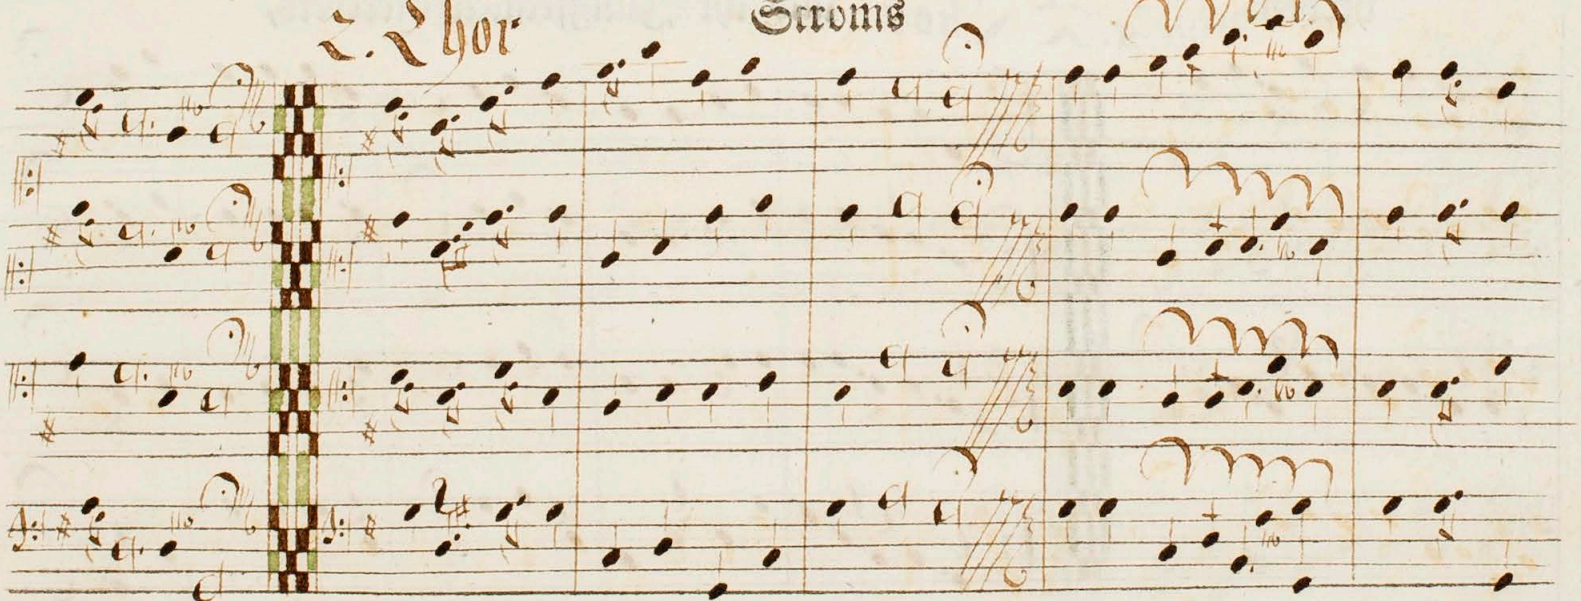 2. Chor
Stroms